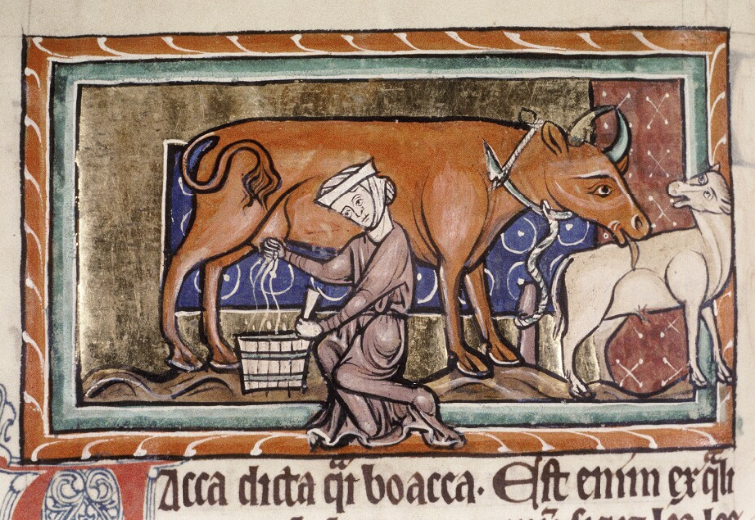 Vacca dicta qͣi boacca. Est enim ex qͣli